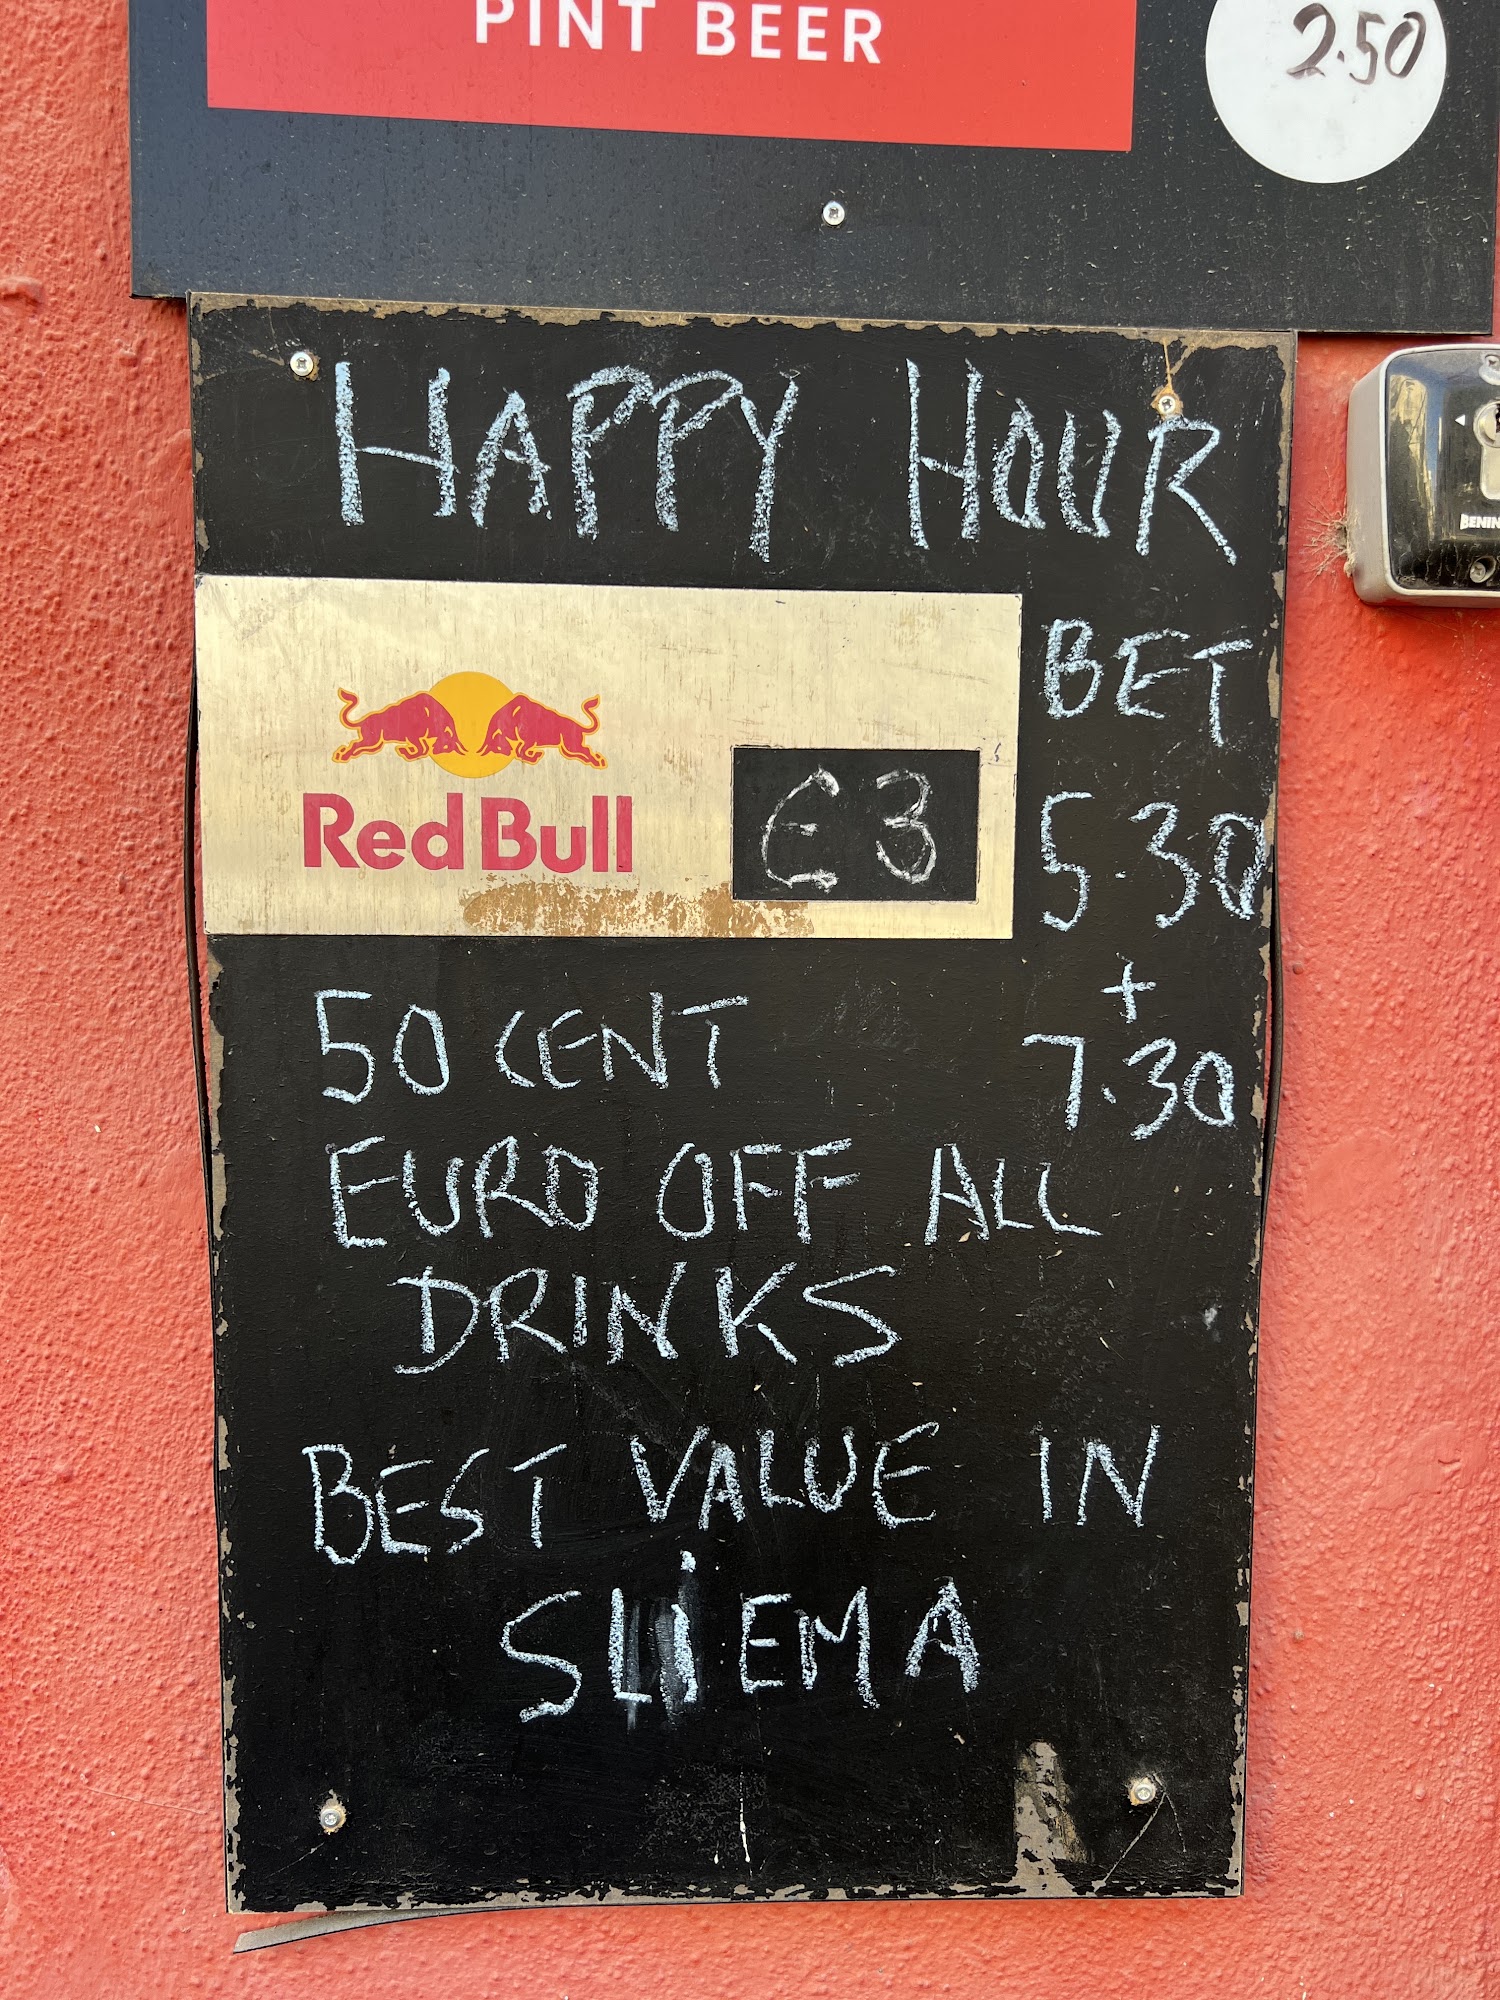 PINT BEER
2.50
HAPPY HOUR
Red Bull
€3
BET
5.30
+
7.30
50 CENT
EURO OFF ALL
DRINKS
BEST VALUE IN
SLiEMA